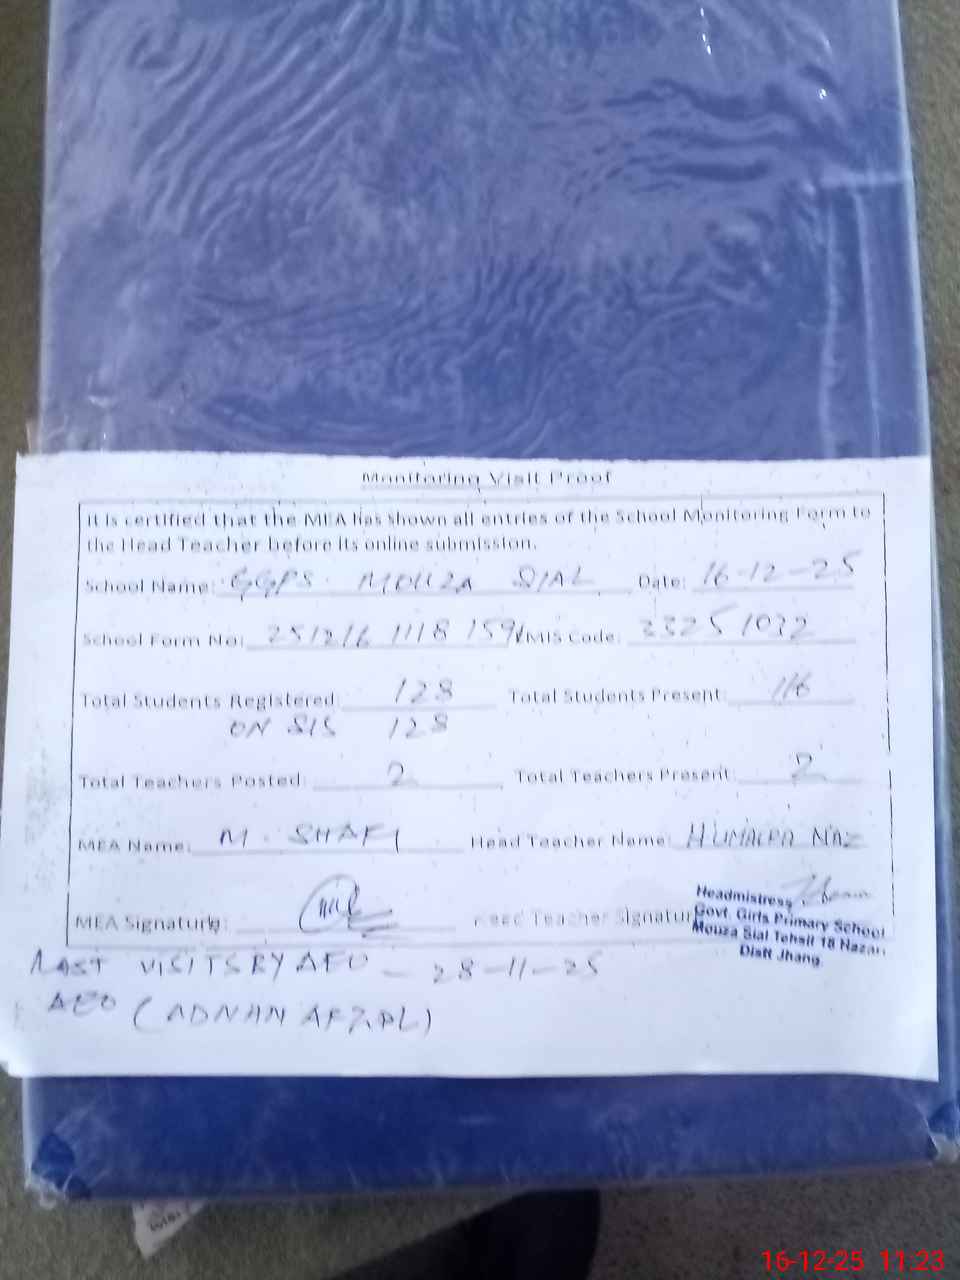 Monitoring Visit Proof
It is certified that the MEA has shown all entries of the School Monitoring Form to
the Head Teacher before its online submission.
School Name: GGPS MOUZA SIAL Date: 16-12-25
School Form No: 251216 1118 159 EMIS Code: 33251032
Total Students Registered: 128 Total Students Present: 116
ON SIS 128
Total Teachers Posted: 2 Total Teachers Present: 2
MEA Name: M. SHAFI Head Teacher Name: HUMAIRA NAZ
MEA Signature: Head Teacher Signature
Headmistress
Govt. Girls Primary School
Mouza Sial Tehsil 18 Hazari
Distt Jhang.
LAST VISITS BY AEO - 28-11-25
AEO (ADNAN AFZAL)
16-12-25 11:23